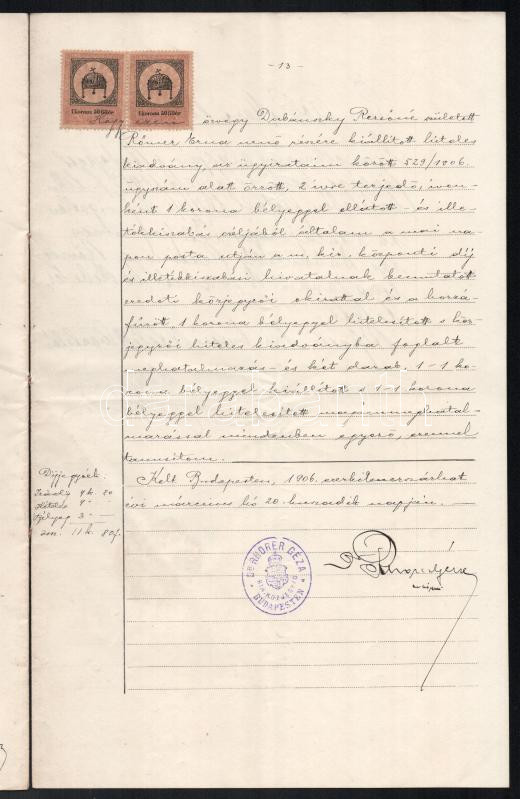 - 13 -
1 korona 50 fillér 1 korona 50 fillér
Hogy ezen özvegy Dubánszky Rezsőné született
Rómer Erna nevű részére kiállított hiteles
kiadvány, az ügyirataim között 529/1906.
ügyszám alatt őrzött, 2 ívre terjedő, íven-
ként 1 korona bélyeggel ellátott - és ille-
tékkiszabás céljából általam a mai na-
pon posta útján a m. kir. központi díj
és illetékkiszabási hivatalnak bemutatott
eredeti közjegyzői okirattal és a hozzá-
fűzött 1 korona bélyeggel hitelesített s köz-
jegyzői hiteles kiadványba foglalt
meghatalmazás - és két darab, 1-1 ko-
rona bélyeggel kiállított s 1-1 korona
bélyeggel hitelesített magánmeghatal-
mazással mindenben egyező, ezennel
tanusítom.
Kelt Budapesten, 1906. ezerkilencszázhat
évi március hó 20. huszadik napján.
Díjjegyzék:
9 k. 20
Bélyeg 3 -
11 k. 80 f.
Dr RUPRER GÉZA
KIR. KÖZJEGYZŐ
BUDAPESTEN
darabanth